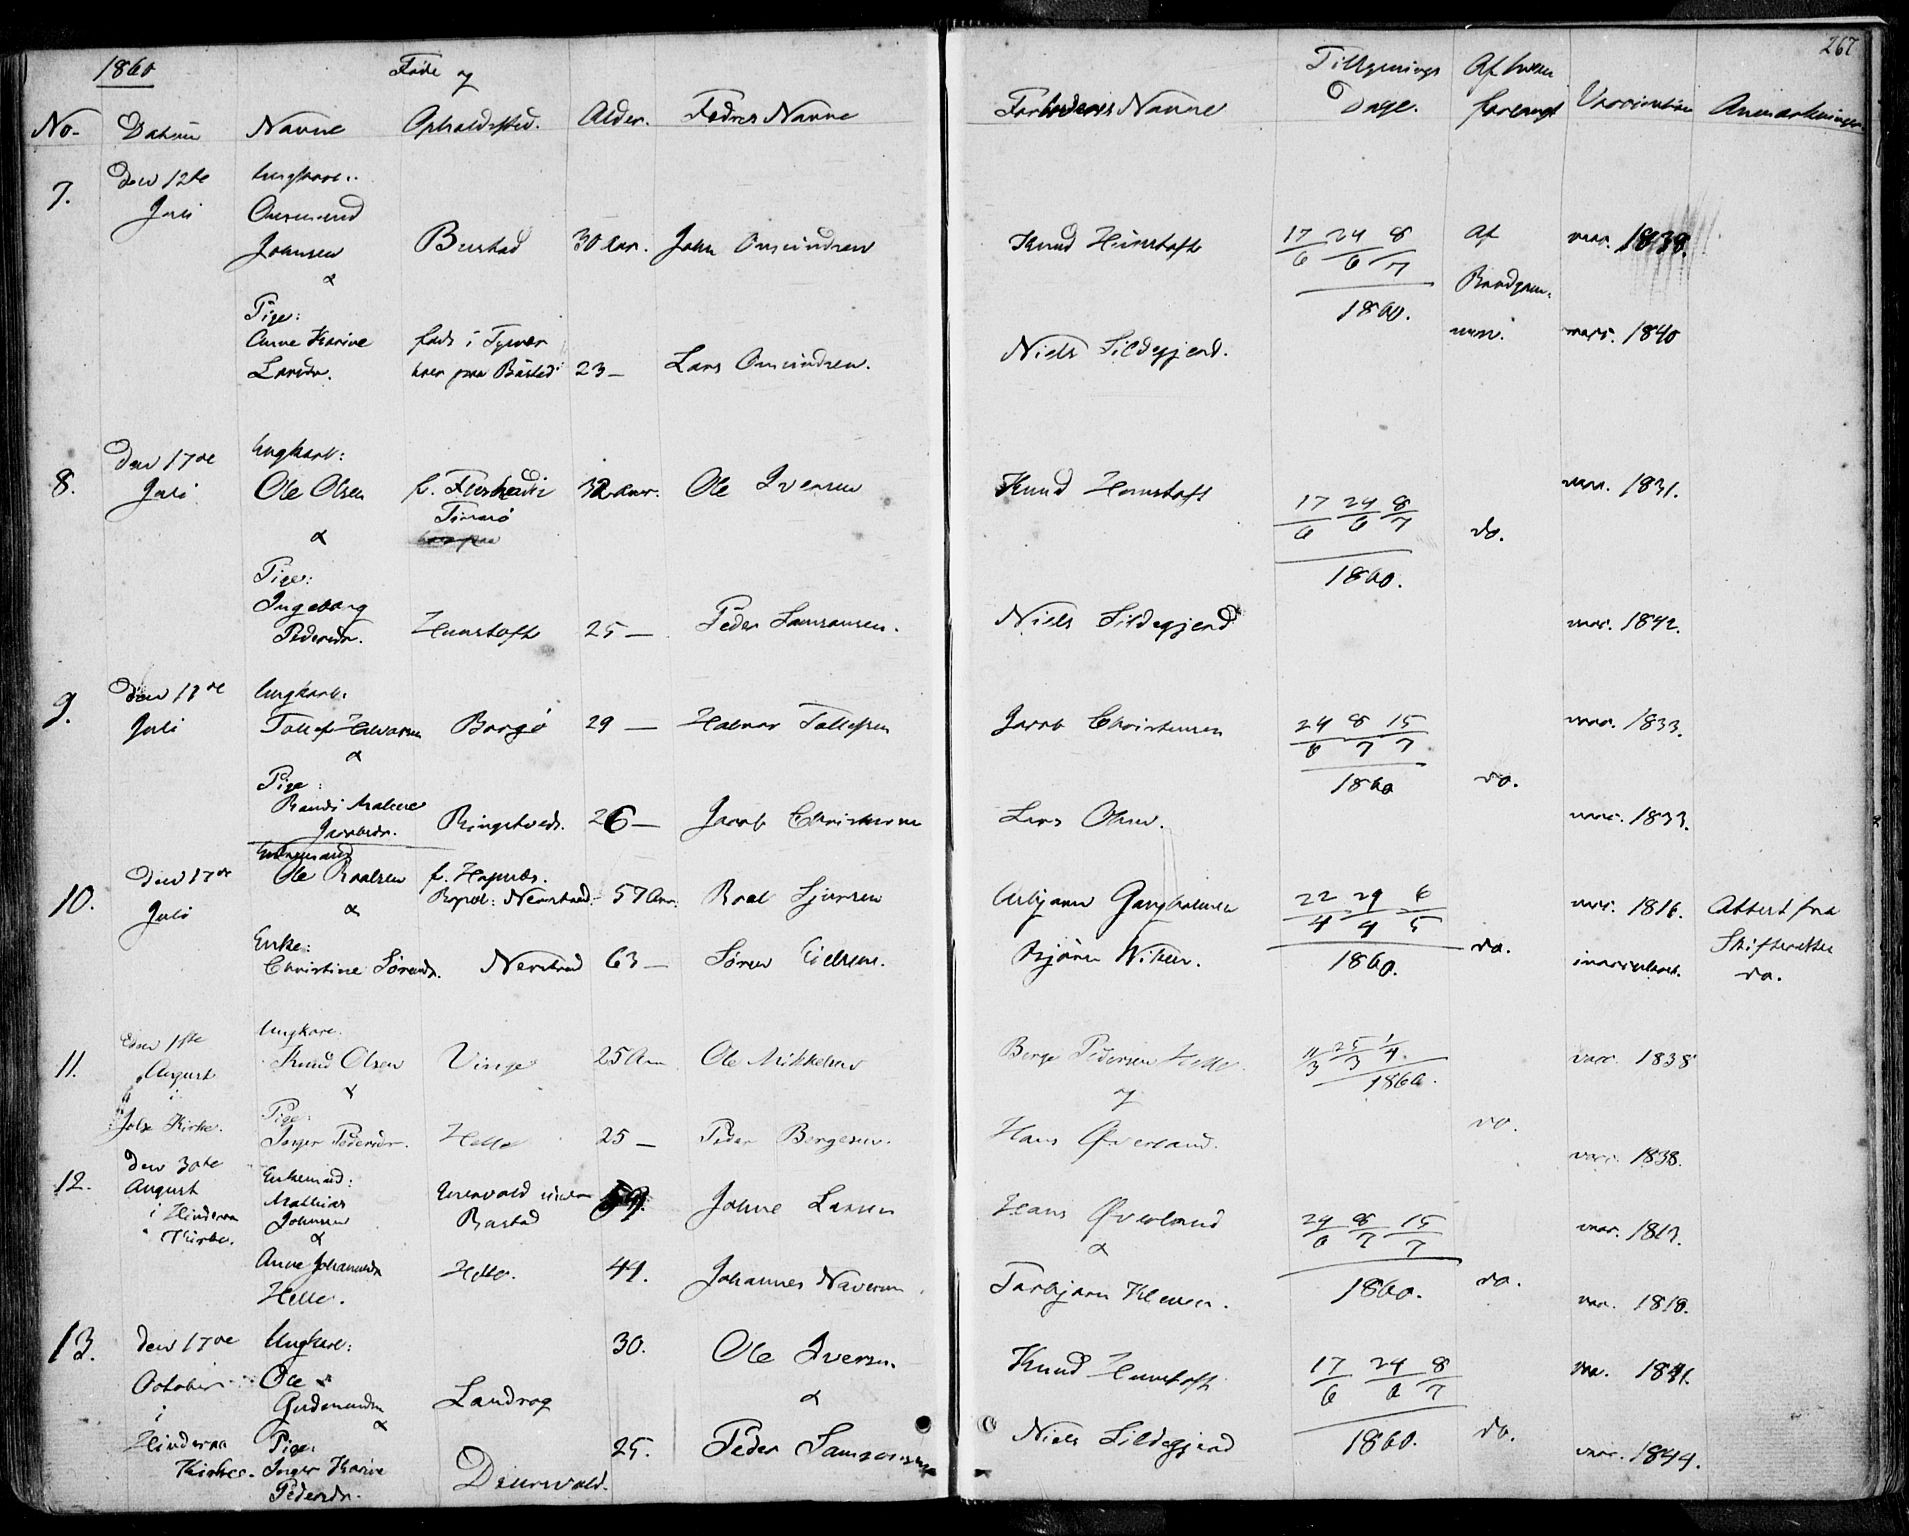 1860
267
No. Datum Navne Føde og Opholdssted. Alder. Fædres Navne
Forloveres Navne Tillysnings Dage. Af hvem forlangt Vaccination Anmærkninger
7. Den 12te Juli
Ungkarl:
Omund Johnsen Bustad 30 Aar. John Omundsen
Knud Humstoft 17/6 24/6 8/7 1860. Af Brudgommen. vacc. 1838.
&
Pige:
Anne Karine Larsdr. født i Tysvær
23 – Lars Omundsen.
Niels Sildegjerd. vacc. 1840
8. Den 17de Juli
Ungkarl:
Ole Olsen 32 Aar. Ole Iversen
Knud Humstoft 17/6 24/6 8/7 1860. do. vacc. 1831.
&
Pige:
Ingeborg Pedersdr. Humstoft 25 – Peder Samsonsen.
Niels Sildegjerd vacc. 1842.
9. Juli
Ungkarl:
Tollef Halvorsen Borgø 29 – Halvor Tollefsen
Jacob Christensen 24/6 8/7 15/7 1860 do. vacc. 1833.
&
Pige:
Randi Malene Jacobsdr. Ringstveds. 26 – Jacob Christensen
Lars Olsen. vacc. 1833.
10. Den 17de Juli
Enkemand
Ole Roalsen
Nerstrand. 57 Aar. Roal Sjursen
22/4 29/4 6/5 1860. do. vacc. 1816. Attest fra Skifteretten
&
Enke:
Christine Sørensdr. Nerstrand 63 – Søren Eielsen.
Bjørn do.
11. August i Jelse Kirke.
Ungkarl.
Knud Olsen Vinge 25 Aar Ole Mikkelsen
Berge Pedersen Helle 11/3 25/3 1/4 1860. do. vacc. 1838
& og
Pige:
Inger Pedersdr. Helle 25 – Peder Bergesen.
Hans Øverland. vacc. 1838.
12. Den 30te August i Hinderaa Kirke.
Enkemand:
Mathias Johnsen
Bastad Johne Larsen
Hans Øverland 24/6 8/7 15/7 1860. do. vacc. 1813.
& &
Anne Johannesdr. Helle. Helle. 41. Johannes
Torbjørn vac. 1818.
13. Den 17de October i Hinderaa Kirke.
Ungkarl:
Ole Gudmundsen Landrog 30. Ole Iversen
Knud Humstoft 17/6 24/6 8/7 1860. do. vac. 1841.
& &
Pige:
Inger Karine Pedersdr. 25. Peder Samsonsen
Niels Sildegjerd vacc. 1844.